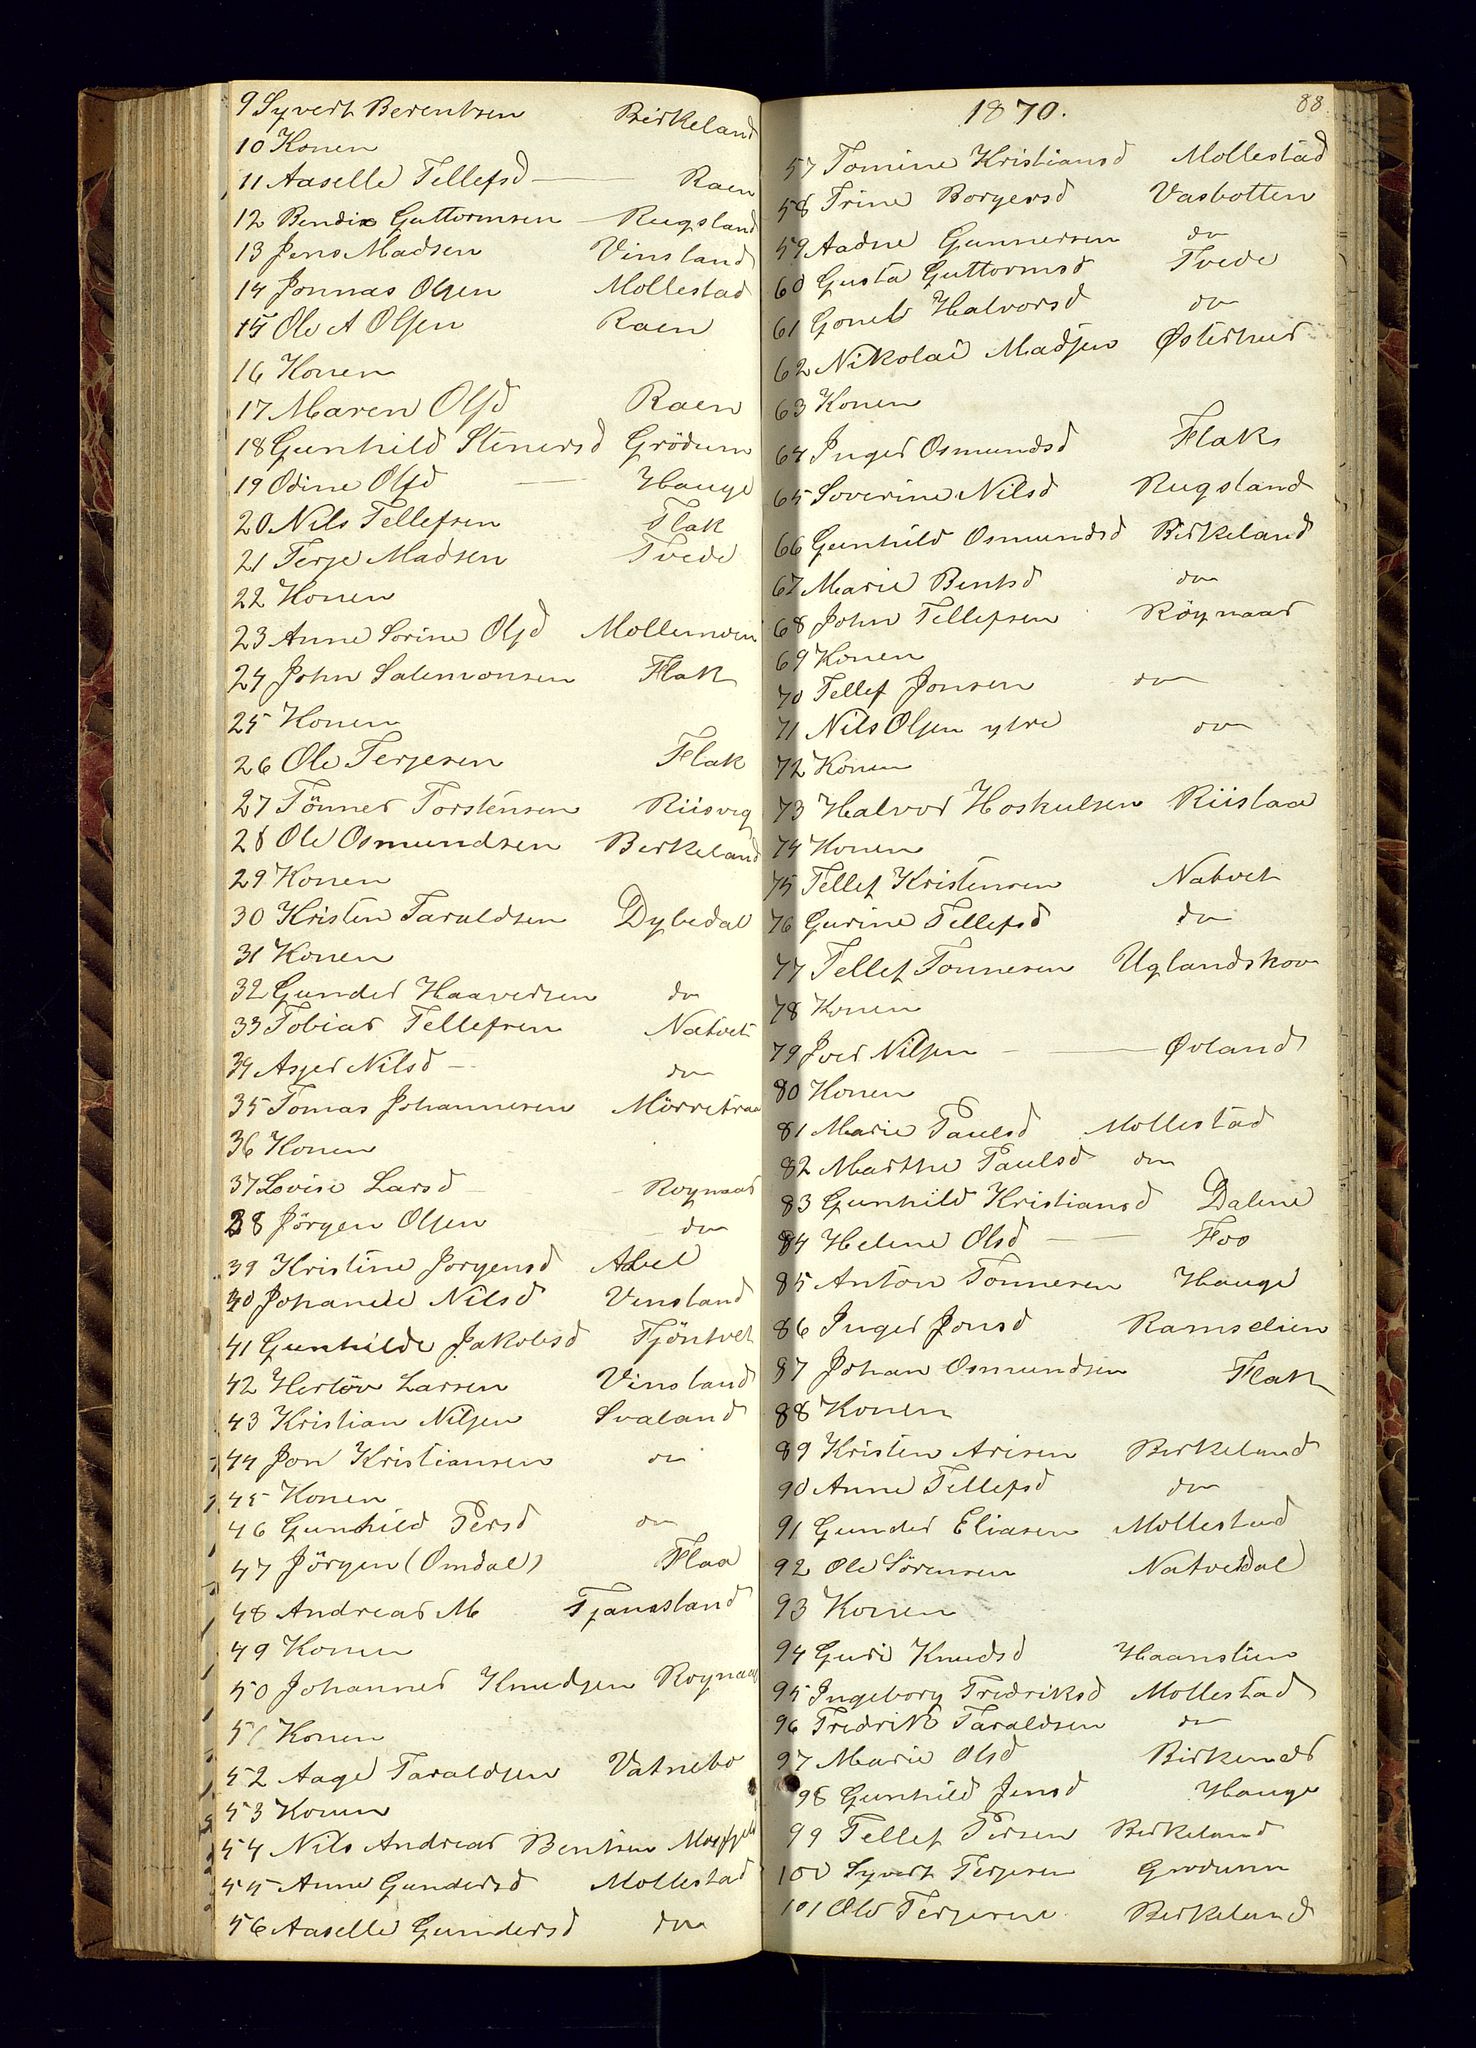 9 Syvert Berentsen Birkeland
10 Konen
11 Aaselle Tellefsd — Raen
12 Bendix Guttormsen Rugsland
13 Jens Madsen Vinsland
14 Jonnas Olsen Mollestad
15 Ole A Olsen Raen
16 Konen
17 Maren Olsd Raen
18 Gunhild Stenersd Grödum
19 Odine Olsd — Hauge
20 Nils Tellefsen Flak
21 Terje Madsen Tvede
22 Konen
23 Anne Sorine Olsd
24 John Salemonsen Flak
25 Konen
26 Ole Terjesen Flak
27 Tönnes Torstensen Riisvig
28 Ole Osmundsen Berkeland
29 Konen
30 Kristen Taraldsen Dybedal
31 Konen
32 Gunder Haaversen do
33 Tobias Tellefsen Natvet
34 Asger Nilsd — do
35 Tomas Johannesen
36 Konen
37 Lovise Larsd — Roynaas
38 Jörgen Olsen do
39 Kristine Jorgensd Abel
40 Johanne Nilsd Vinsland
41 Gunhilde Jakobsd Tjöntvet
42 Herlöv Larsen Vinsland
43 Kristian Nilsen Svaland
44 Jon Kristiansen do
45 Konen
46 Gunhild Persd do
47 Jörgen (Omdal) Flaa
48 Andreas M Tjaansland
49 Konen
50 Johannes Knudsen Roynaas
51 Konen
52 Aage Taraldsen Vatnebo
53 Konen
54 Nils Andreas Bentsen
55 Anne Gundersd Mollestad
56 Aaselle Gundersd do
1870. 88
57 Tomine Kristiansd Mollestad
58 Trine Borgersd Vasbotten
59 Aadne Gunnersen do
60 Gusta Guttormsd Tvede
61 Gonel Halvorsd do
62 Nikolai Madsen Østerhus
63 Konen
64 Inger Osmundsd Flak
65 Soverine Nilsd Rugsland
66 Gunhild Osmundsd Birkeland
67 Marie Bentsd do
68 John Tellefsen Röynaas
69 Konen
70 Tellef Jonsen do
71 Nils Olsen ytre do
72 Konen
73 Halvor Hoskulsen Riislaa
74 Konen
75 Tellef Kristensen Natvet
76 Gurine Tellefsd do
77 Tellef Tonnesen Uglandskov
78 Konen
79 Iver Nilsen — Øvland
80 Konen
81 Marie Paulsd Mollestad
82 Marthe Paulsd do
83 Gunhild Kristiansd Dalene
84 Helene Olsd — Foo
85 Anton Tonnesen Hauge
86 Inger Jonsd Ramselien
87 Johan Osmundsen Flak
88 Konen
89 Kristen Arisen Berkeland
90 Anne Tellefsd do
91 Gunder Eliasen Mollestad
92 Ole Sörensen Natvetdal
93 Konen
94 Guri Knudsd Haanslien
95 Ingeborg Fredriksd Mollestad
96 Fredrik Taraldsen do
97 Marie Olsd Birkenes
98 Gunhild Jensd Hauge
99 Tellef Persen Berkeland
100 Syvert Terjesen Grodum
101 Ole Terjesen Berkeland